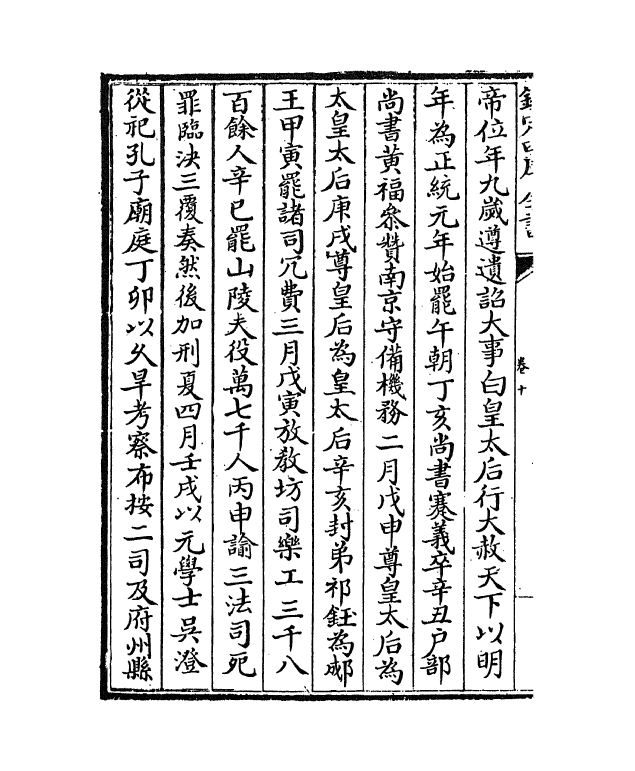 帝位年九歲遵遺詔大事白皇太后行大赦天下以明
年為正統元年始罷午朝丁亥尚書蹇義卒辛丑户部
尚書黄福叅贊南京守備機務二月戊申尊皇太后為
太皇太后庚戌尊皇后為皇太后辛亥封弟祁鈺為郕
王甲寅罷諸司冗費三月戊寅放教坊司樂工三千八
百餘人辛巳罷山陵夫役萬七千人丙申諭三法司死
罪臨決三覆奏然後加刑夏四月壬戌以元學士吳澄
從祀孔子廟庭丁卯以久旱考察布按二司及府州縣
卷十